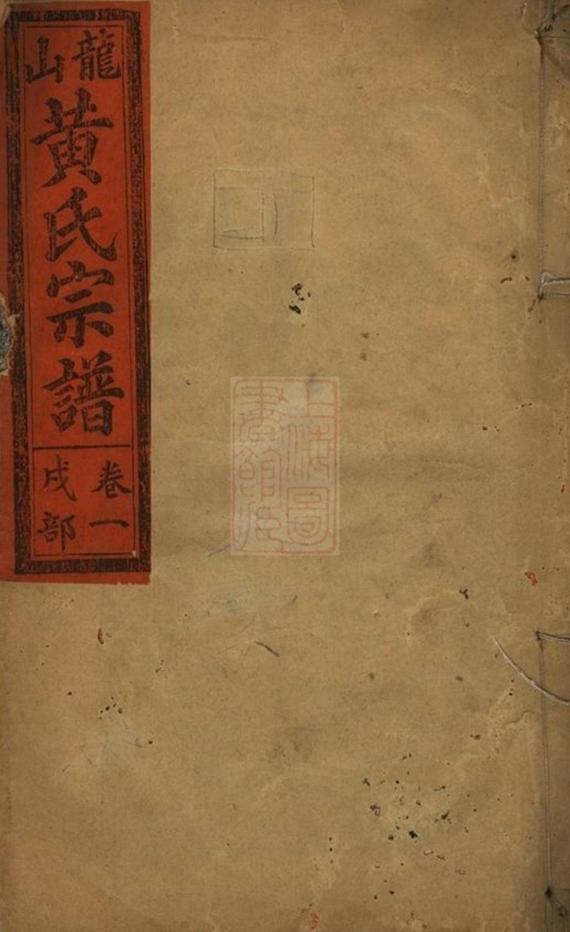 龍山
黄氏宗譜
卷一
戌部
上海圖
書館藏